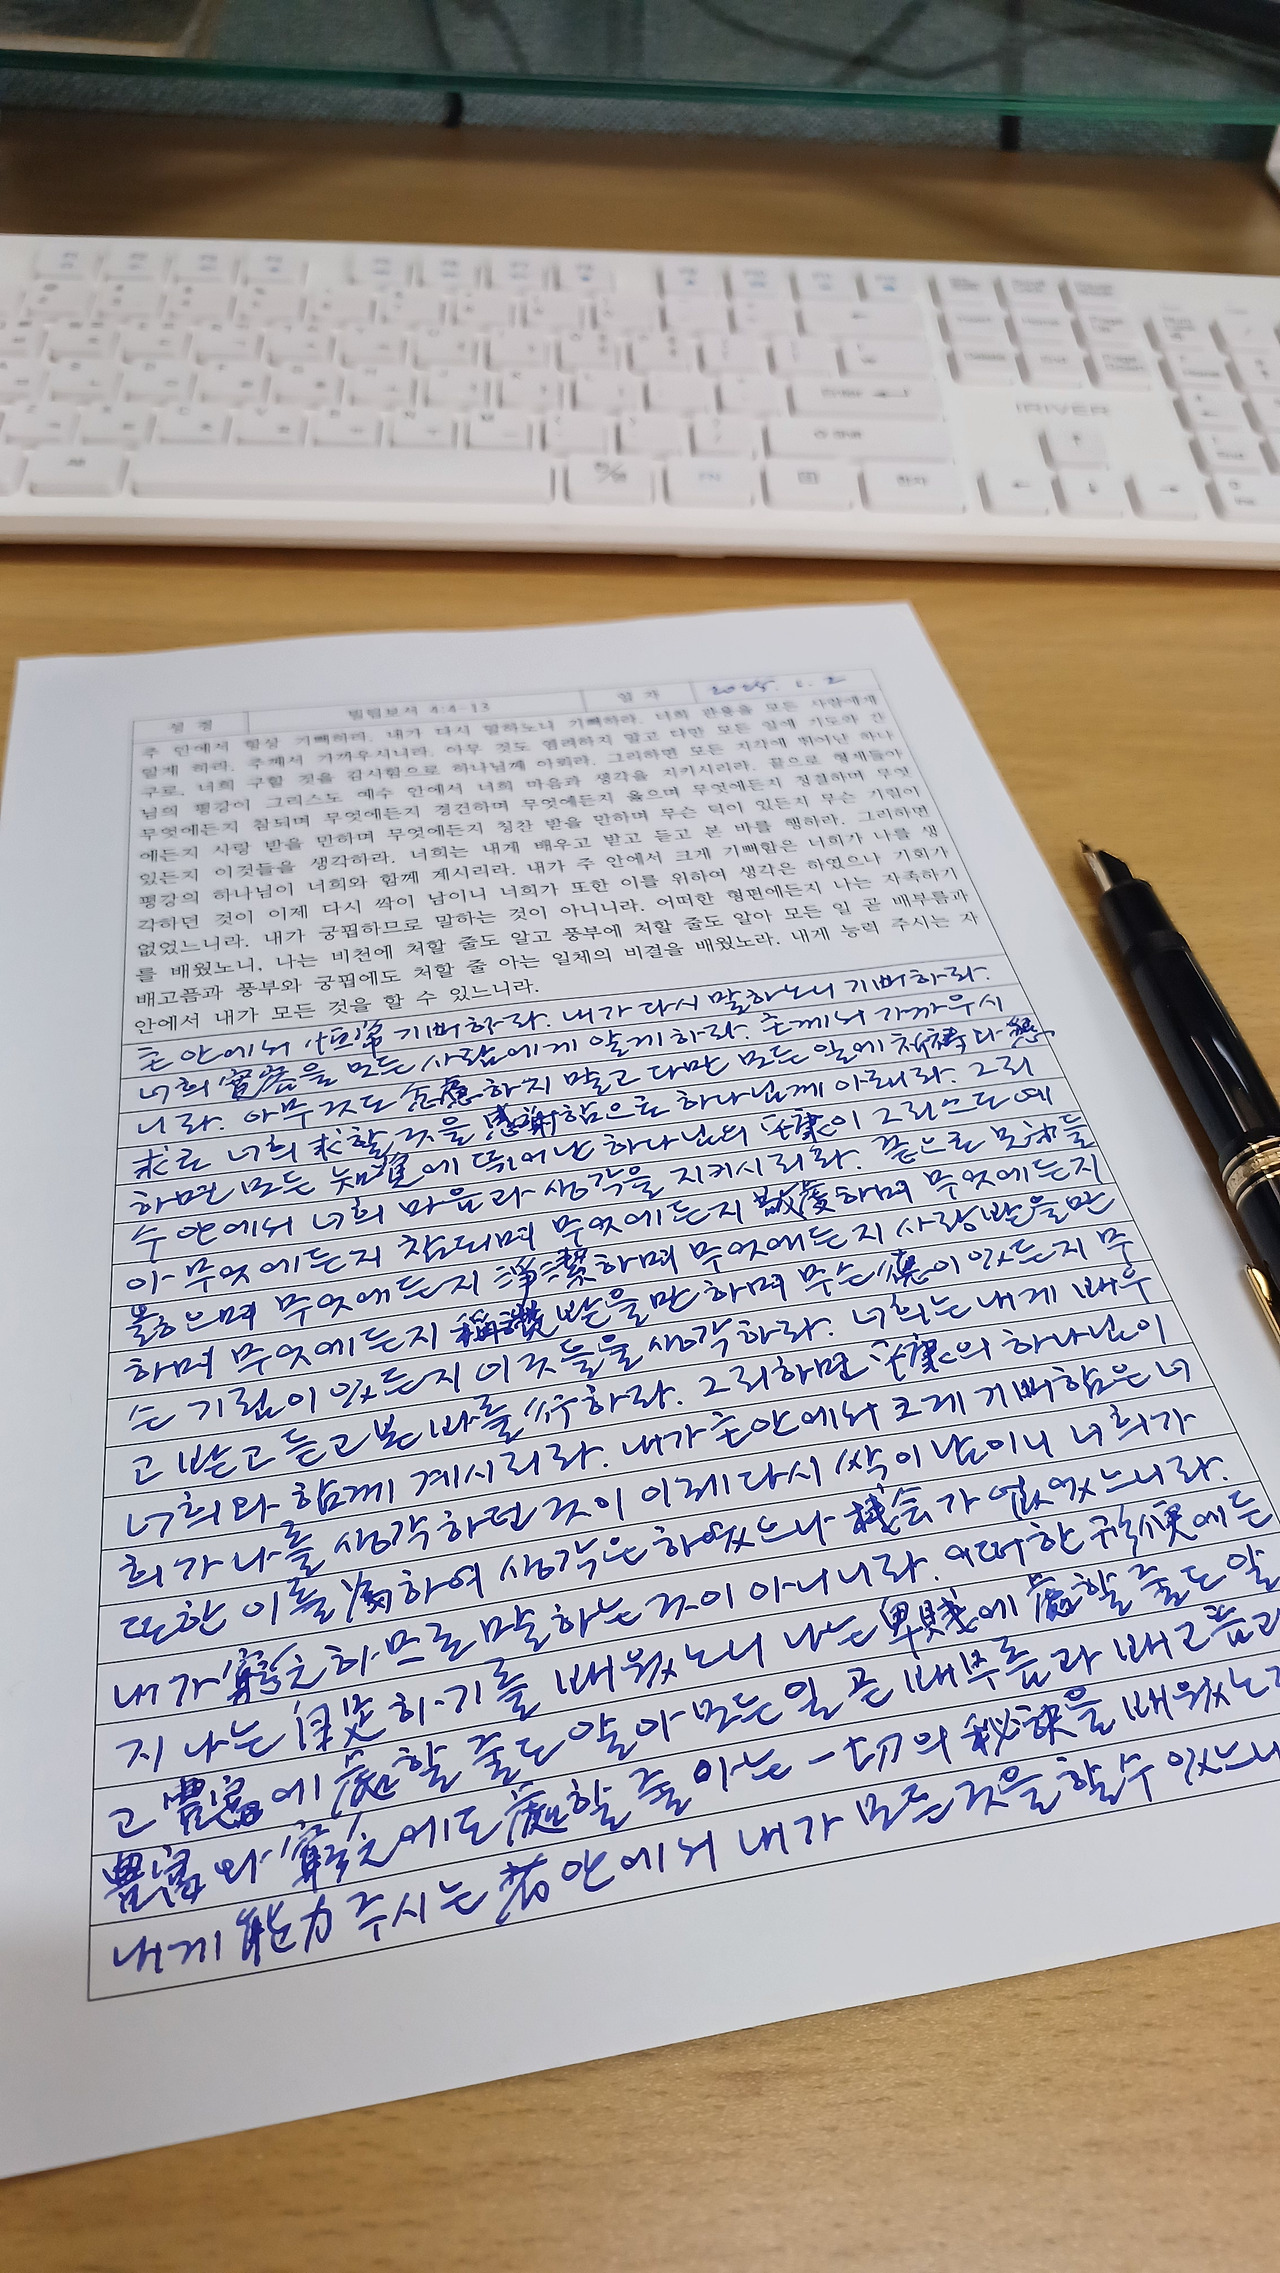 IRIVER
성 경 빌립보서 4:4-13 일 자 2025. 1. 2
주 안에서 항상 기뻐하라. 내가 다시 말하노니 기뻐하라. 너희 관용을 모든 사람에게
알게 하라. 주께서 가까우시니라. 아무 것도 염려하지 말고 다만 모든 일에 기도와 간
구로, 너희 구할 것을 감사함으로 하나님께 아뢰라. 그리하면 모든 지각에 뛰어난 하나
님의 평강이 그리스도 예수 안에서 너희 마음과 생각을 지키시리라. 끝으로 형제들아
무엇에든지 참되며 무엇에든지 경건하며 무엇에든지 옳으며 무엇에든지 정결하며 무엇
에든지 사랑 받을 만하며 무엇에든지 칭찬 받을 만하며 무슨 덕이 있든지 무슨 기림이
있든지 이것들을 생각하라. 너희는 내게 배우고 받고 듣고 본 바를 행하라. 그리하면
평강의 하나님이 너희와 함께 계시리라. 내가 주 안에서 크게 기뻐함은 너희가 나를 생
각하던 것이 이제 다시 싹이 남이니 너희가 또한 이를 위하여 생각은 하였으나 기회가
없었느니라. 내가 궁핍하므로 말하는 것이 아니니라. 어떠한 형편에든지 나는 자족하기
를 배웠노니, 나는 비천에 처할 줄도 알고 풍부에 처할 줄도 알아 모든 일 곧 배부름과
배고픔과 풍부와 궁핍에도 처할 줄 아는 일체의 비결을 배웠노라. 내게 능력 주시는 자
안에서 내가 모든 것을 할 수 있느니라.
안에서 恒常 기뻐하라. 내가 다시 말하노니 기뻐하라.
너희 寬容을 모든 사람에게 알게하라. 께서 가까우시
니라. 아무것도 念慮하지 말고 다만 모든 일에 祈禱와 懇
求로 너희 求할 것을 感謝함으로 하나님께 아뢰라. 그리
하면 모든 知覺에 뛰어난 하나님의 平康이 그리스도 예
수 안에서 너희 마음과 생각을 지키시리라. 끝으로 들
아 무엇에든지 참되며 무엇에든지 敬虔하며 무엇에든지
옳으며 무엇에든지 淨潔하며 무엇에든지 사랑받을만
하며 무엇에든지 稱讚받을만하며 무슨 德이 있든지 무
슨 기림이 있든지 이것들을 생각하라. 너희는 내게 배우
고 받고 듣고 본 바를 行하라. 그리하면 平康의 하나님이
너희와 함께 계시리라. 내가 안에서 크게 기뻐함은 너
희가 나를 생각하던 것이 이제 다시 싹이 남이니 너희가
또한 이를 爲하여 생각은 하였으나 機会가 없었느니라.
내가 窮乏하므로 말하는 것이 아니니라. 어떠한 形便에든
지 나는 自足하기를 배웠노니 나는 卑賤에 處할 줄도 알
고 豊富에 處할 줄도 알아 모든 일 곧 배부름과 배고픔과
豊富와 窮乏에도 處할 줄 아는 一切의 秘訣을 배웠노라
내게 能力 주시는 者 안에서 내가 모든 것을 할 수 있느니